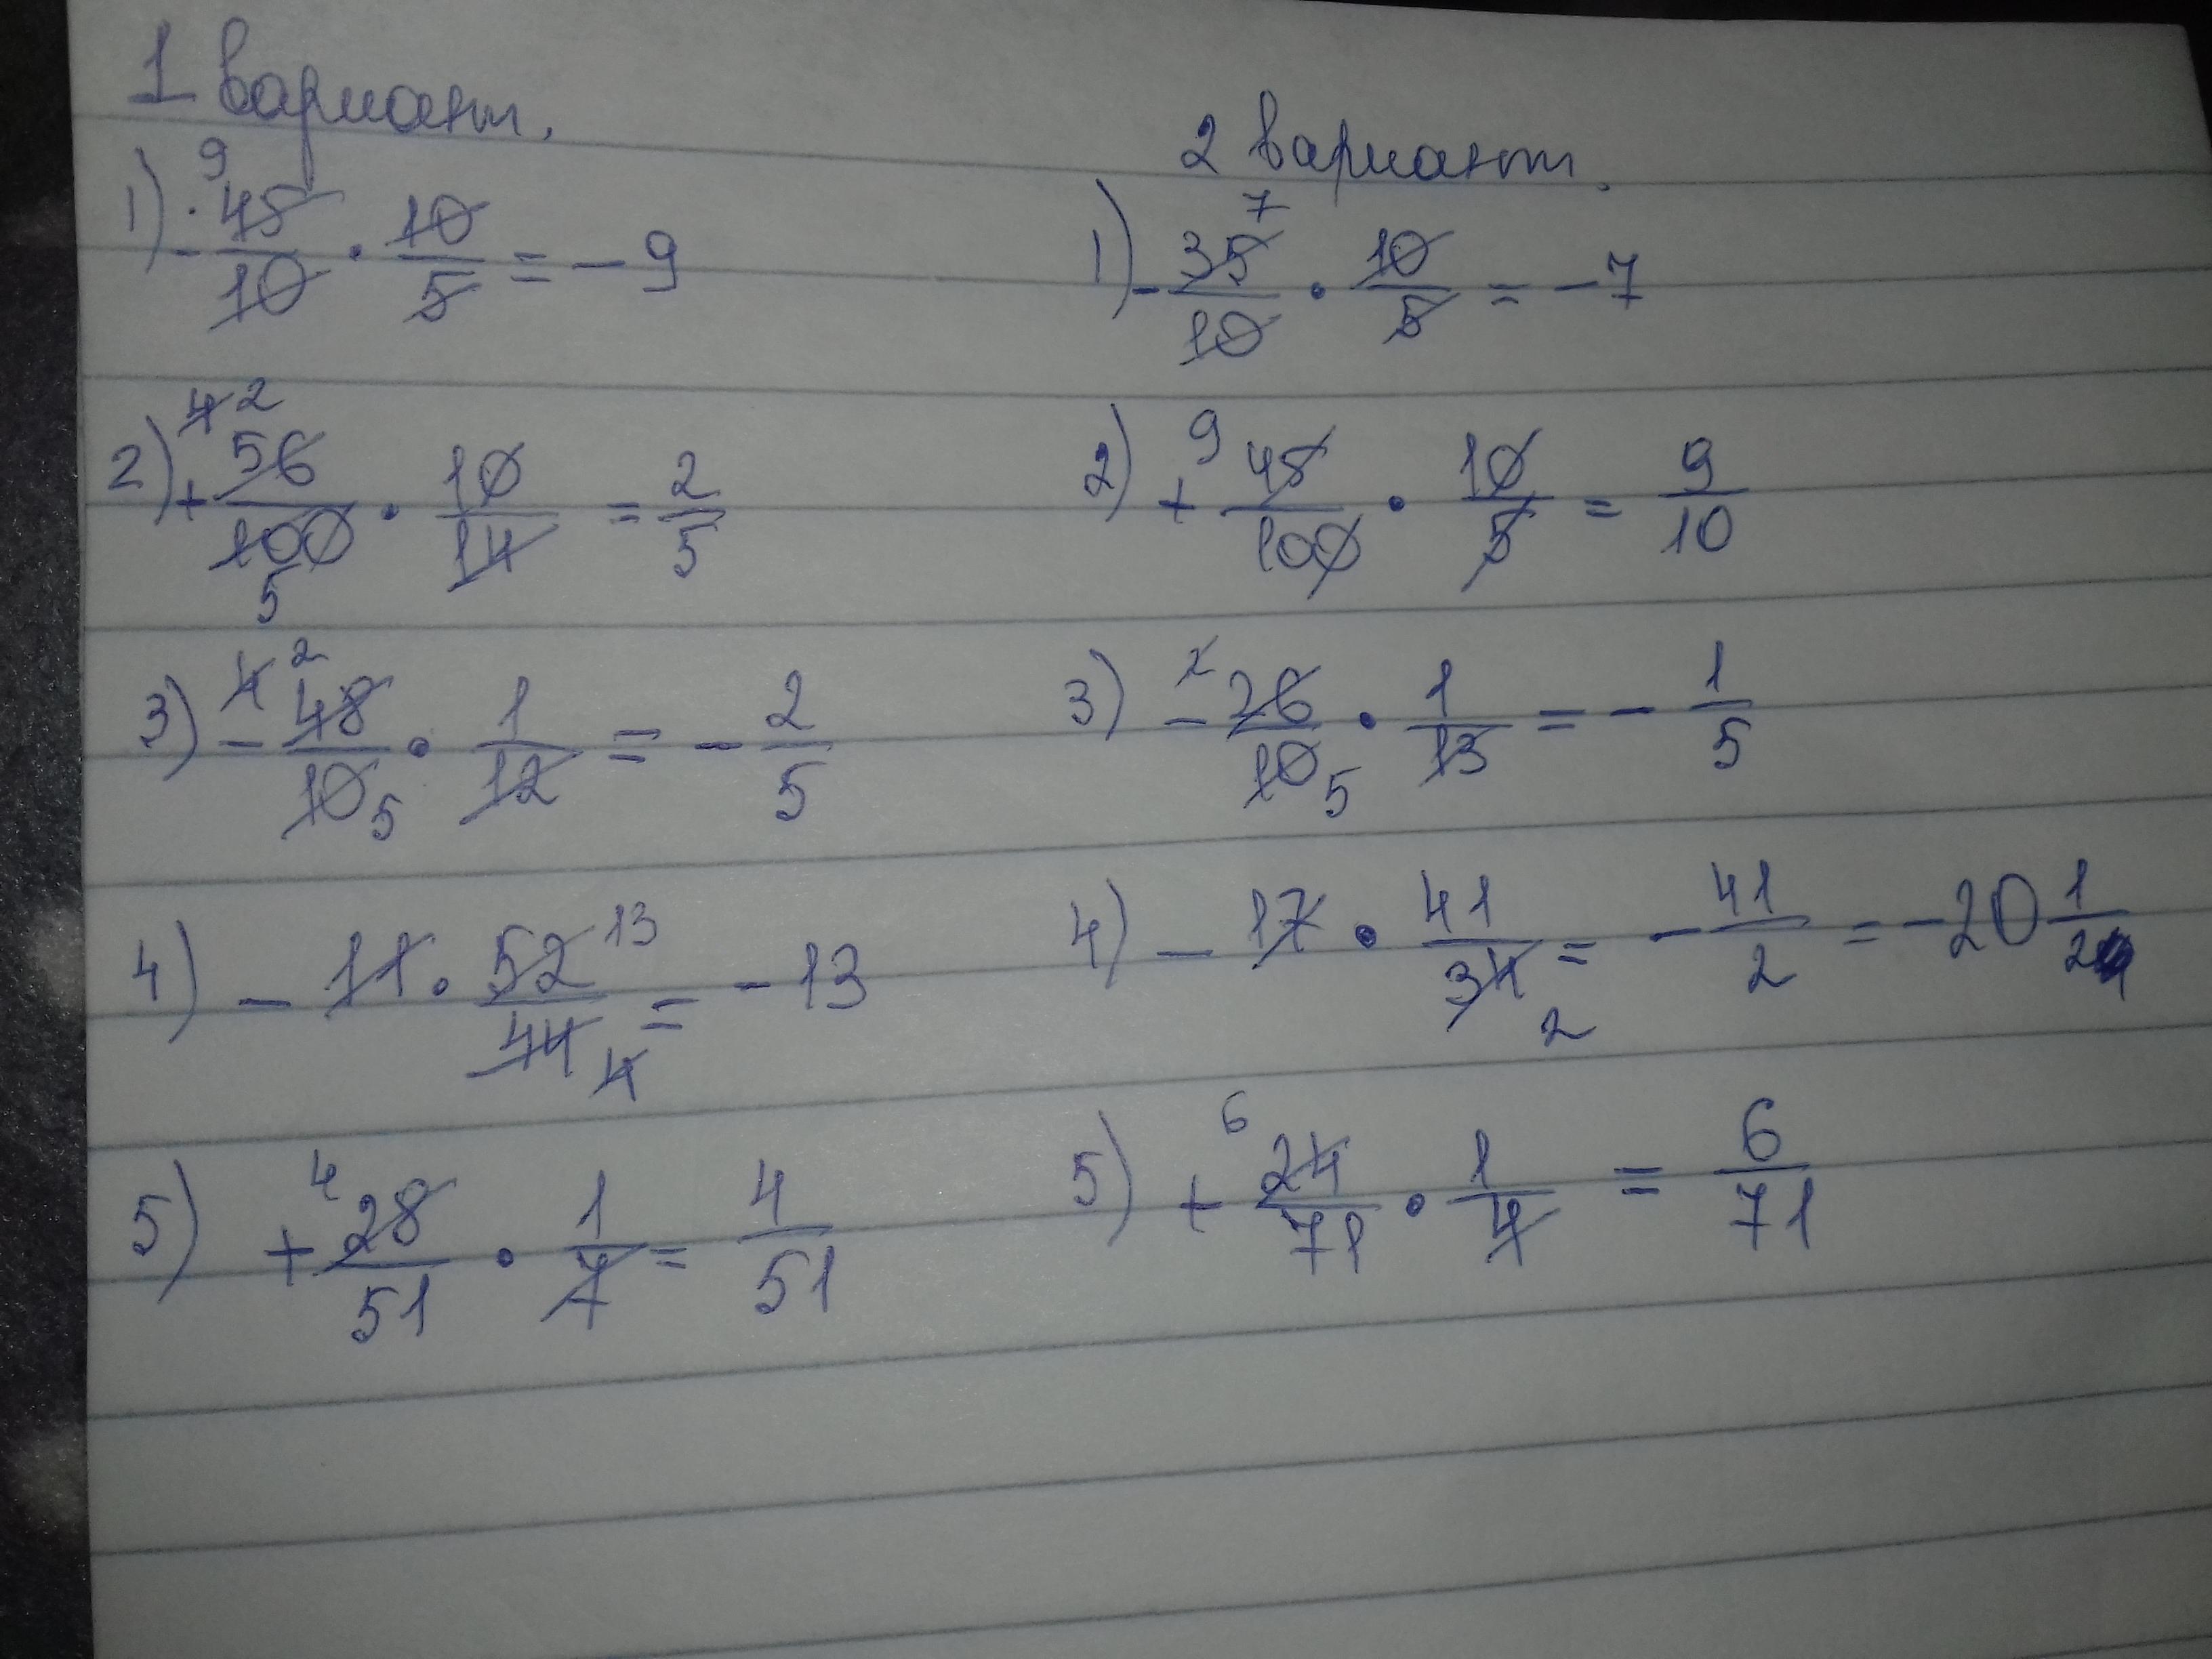 1 вариант.
1) - 45/10 · 10/5 = - 9
9
2) + 56/100 · 10/14 = 2/5
4 2
5
3) - 48/10 · 1/12 = - 2/5
4 2
5
4) - 11 · 52/44 = - 13
13
4
5) + 28/51 · 1/7 = 4/51
4
2 вариант.
1) - 35/10 · 10/5 = - 7
7
2) + 45/100 · 10/5 = 9/10
9
3) - 26/10 · 1/13 = - 1/5
2
5
4) - 17 · 41/34 = - 41/2 = - 20 1/2
2
5) + 24/71 · 1/4 = 6/71
6